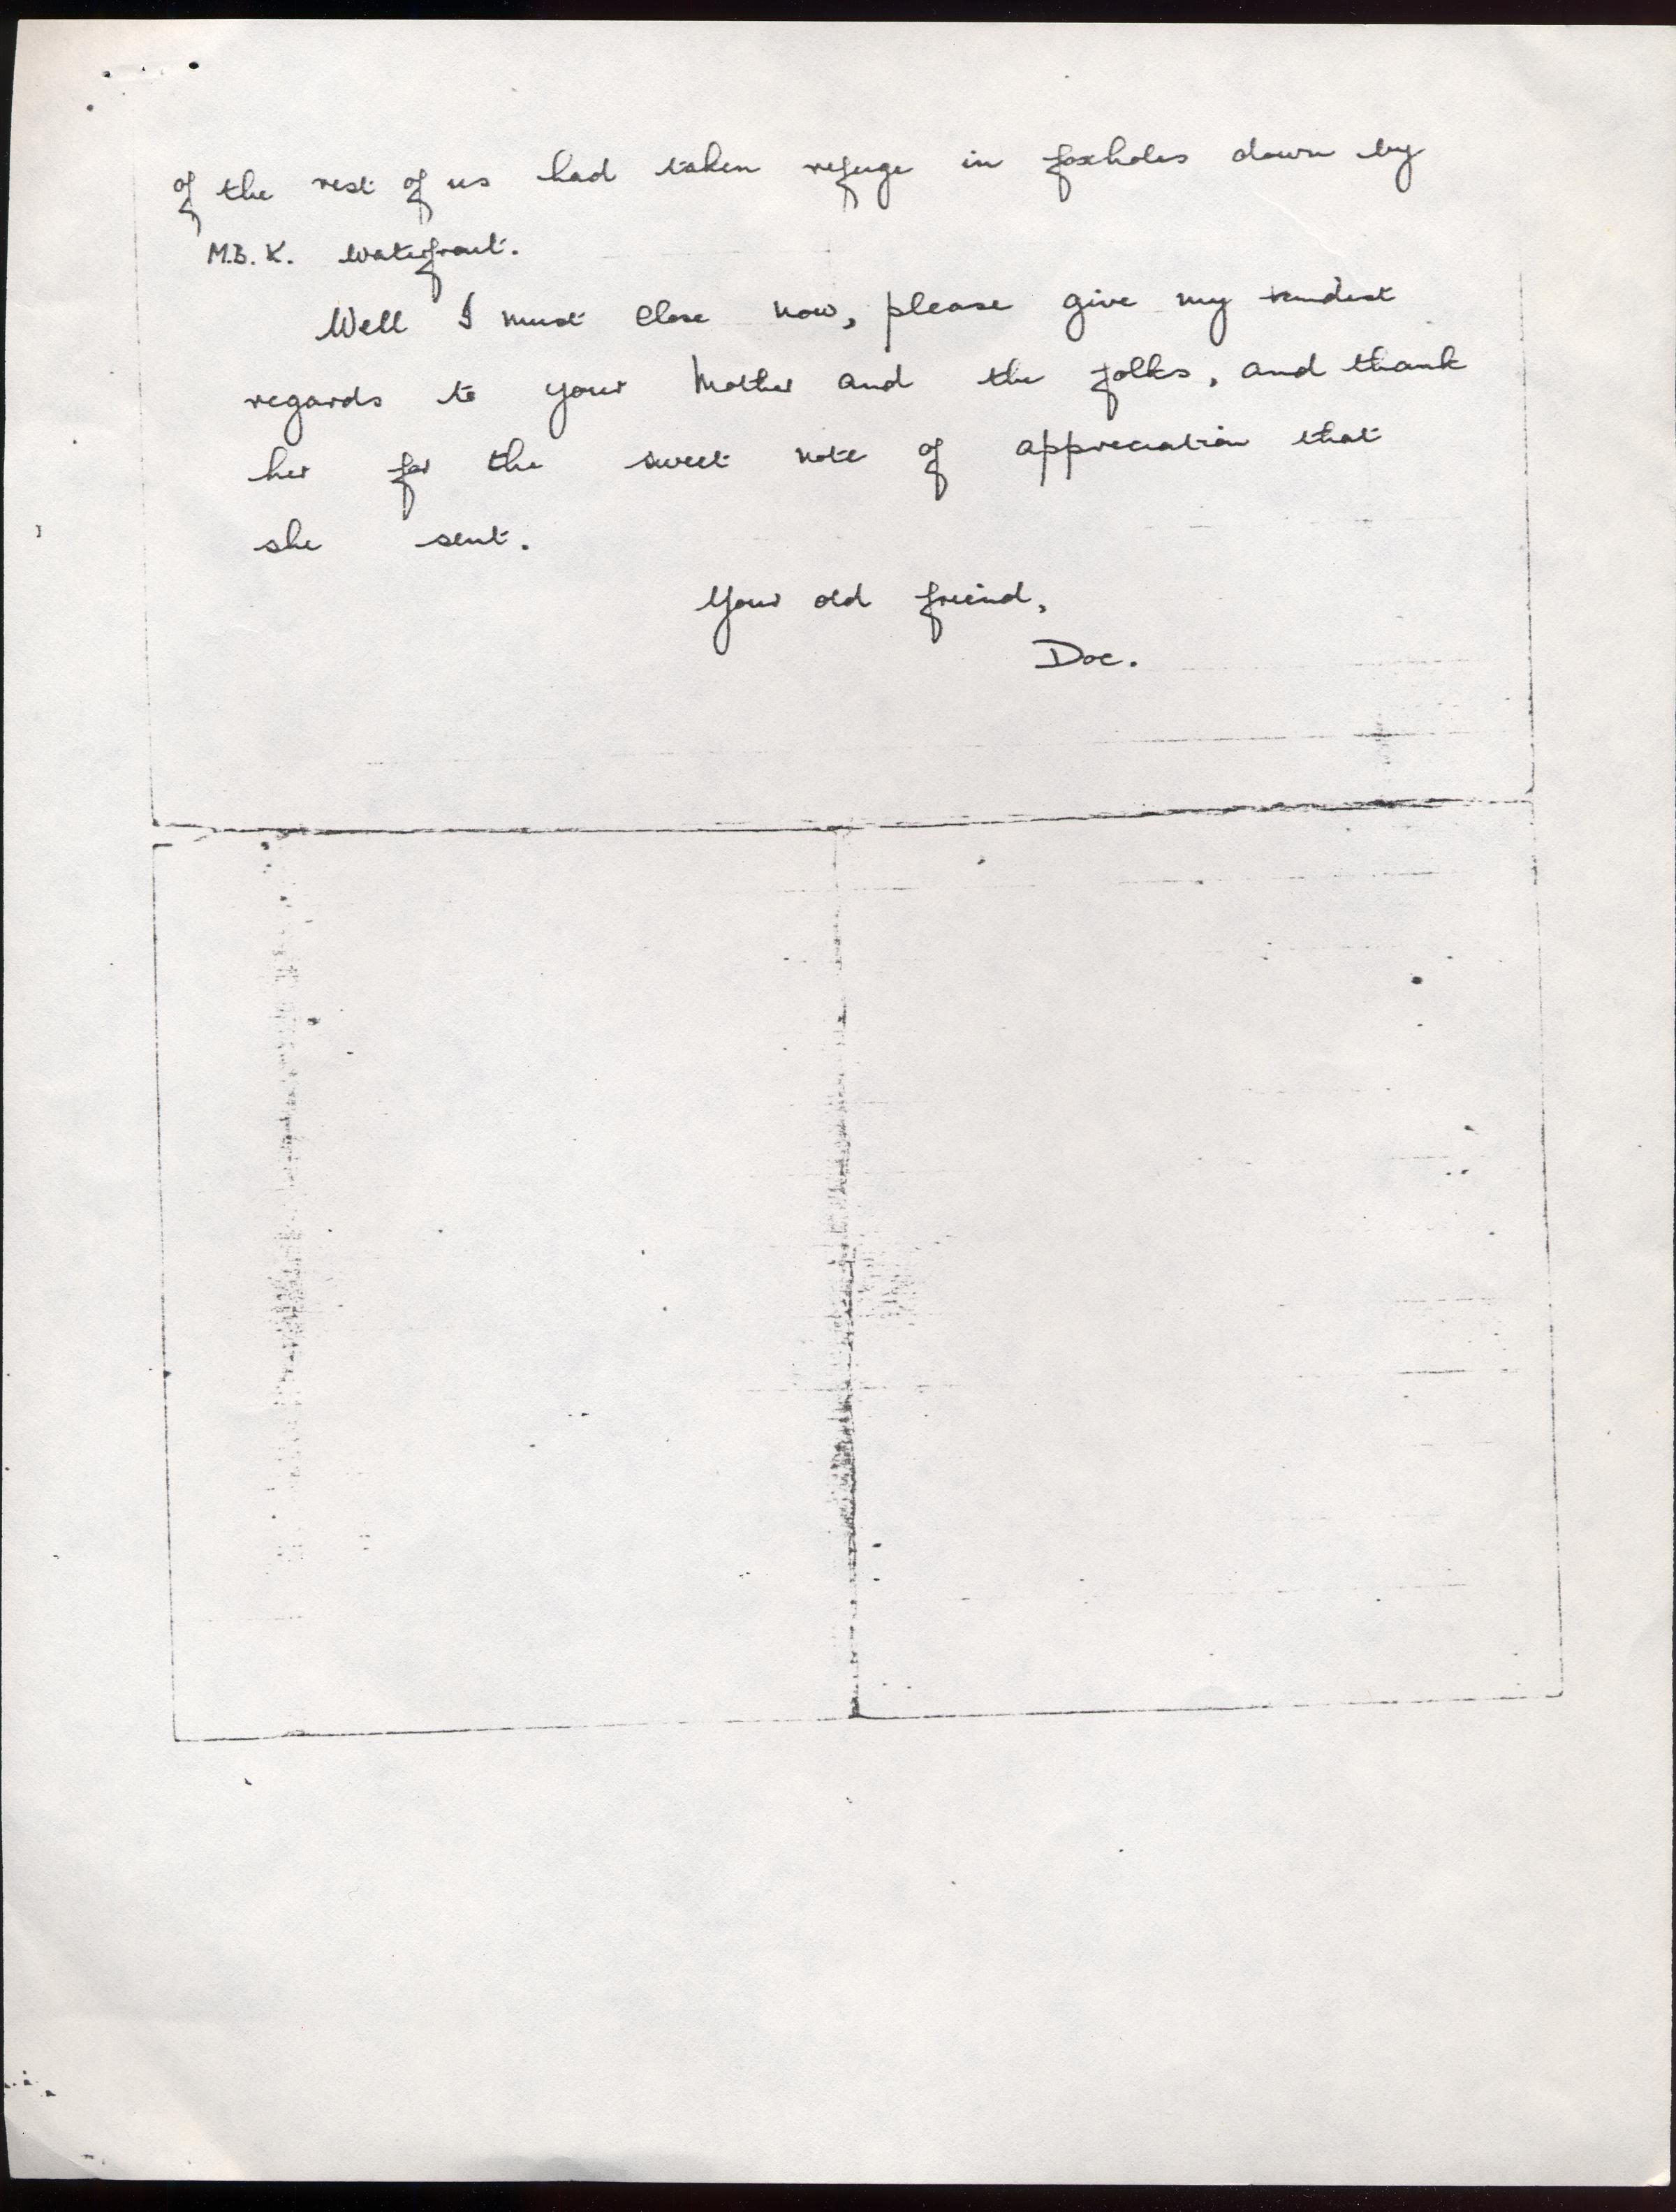 of the rest of us had taken refuge in foxholes down by
M.B.K. waterfront.
Well I must close now, please give my kindest
regards to your Mother and the folks, and thank
her for the sweet note of appreciation that
she sent.
Your old friend,
Doc.